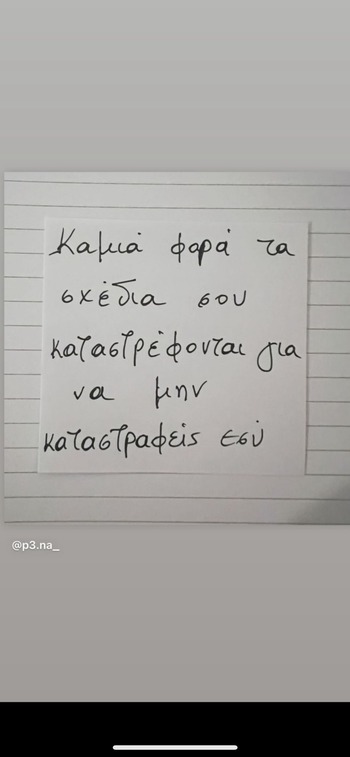 Καμιά φορά τα
σχέδια σου
καταστρέφονται για
να μην
καταστραφείς εσύ
@p3.na_